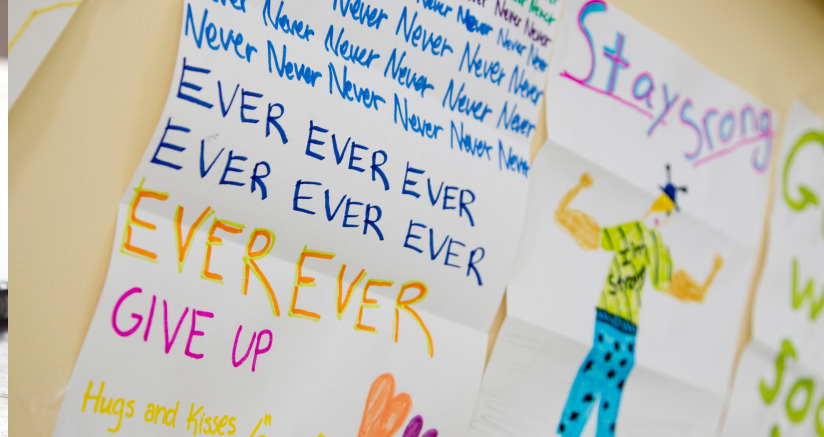 Never
Never Never
Never Never Never
Never Never Never Never
Never Never Never Never Never
Never Never Never Never Never Never
EVER EVER EVER
EVER EVER EVER
EVER EVER
GIVE UP
Hugs and Kisses
Stay srong
I'm
strong